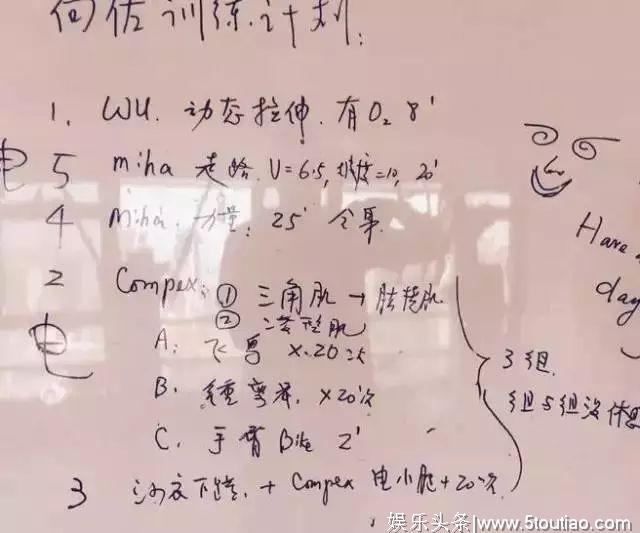 何佐训练计划:
1. WU. 动态拉伸. 有O₂ 8'
电 5 miha 走路. V=6.5, 坡度=10, 20'
4 Miha. 力量: 25'
2 Compex: ① 三角肌 → 肱桡肌
② 菱型肌
电
A: 飞鸟 x.20次
B. 弯举. x20次
C. 手臂 Bike 2'
3组.
组与组没休息
3 + Compex 电小腿+20次
Have a
day
娱乐头条|www.5toutiao.com